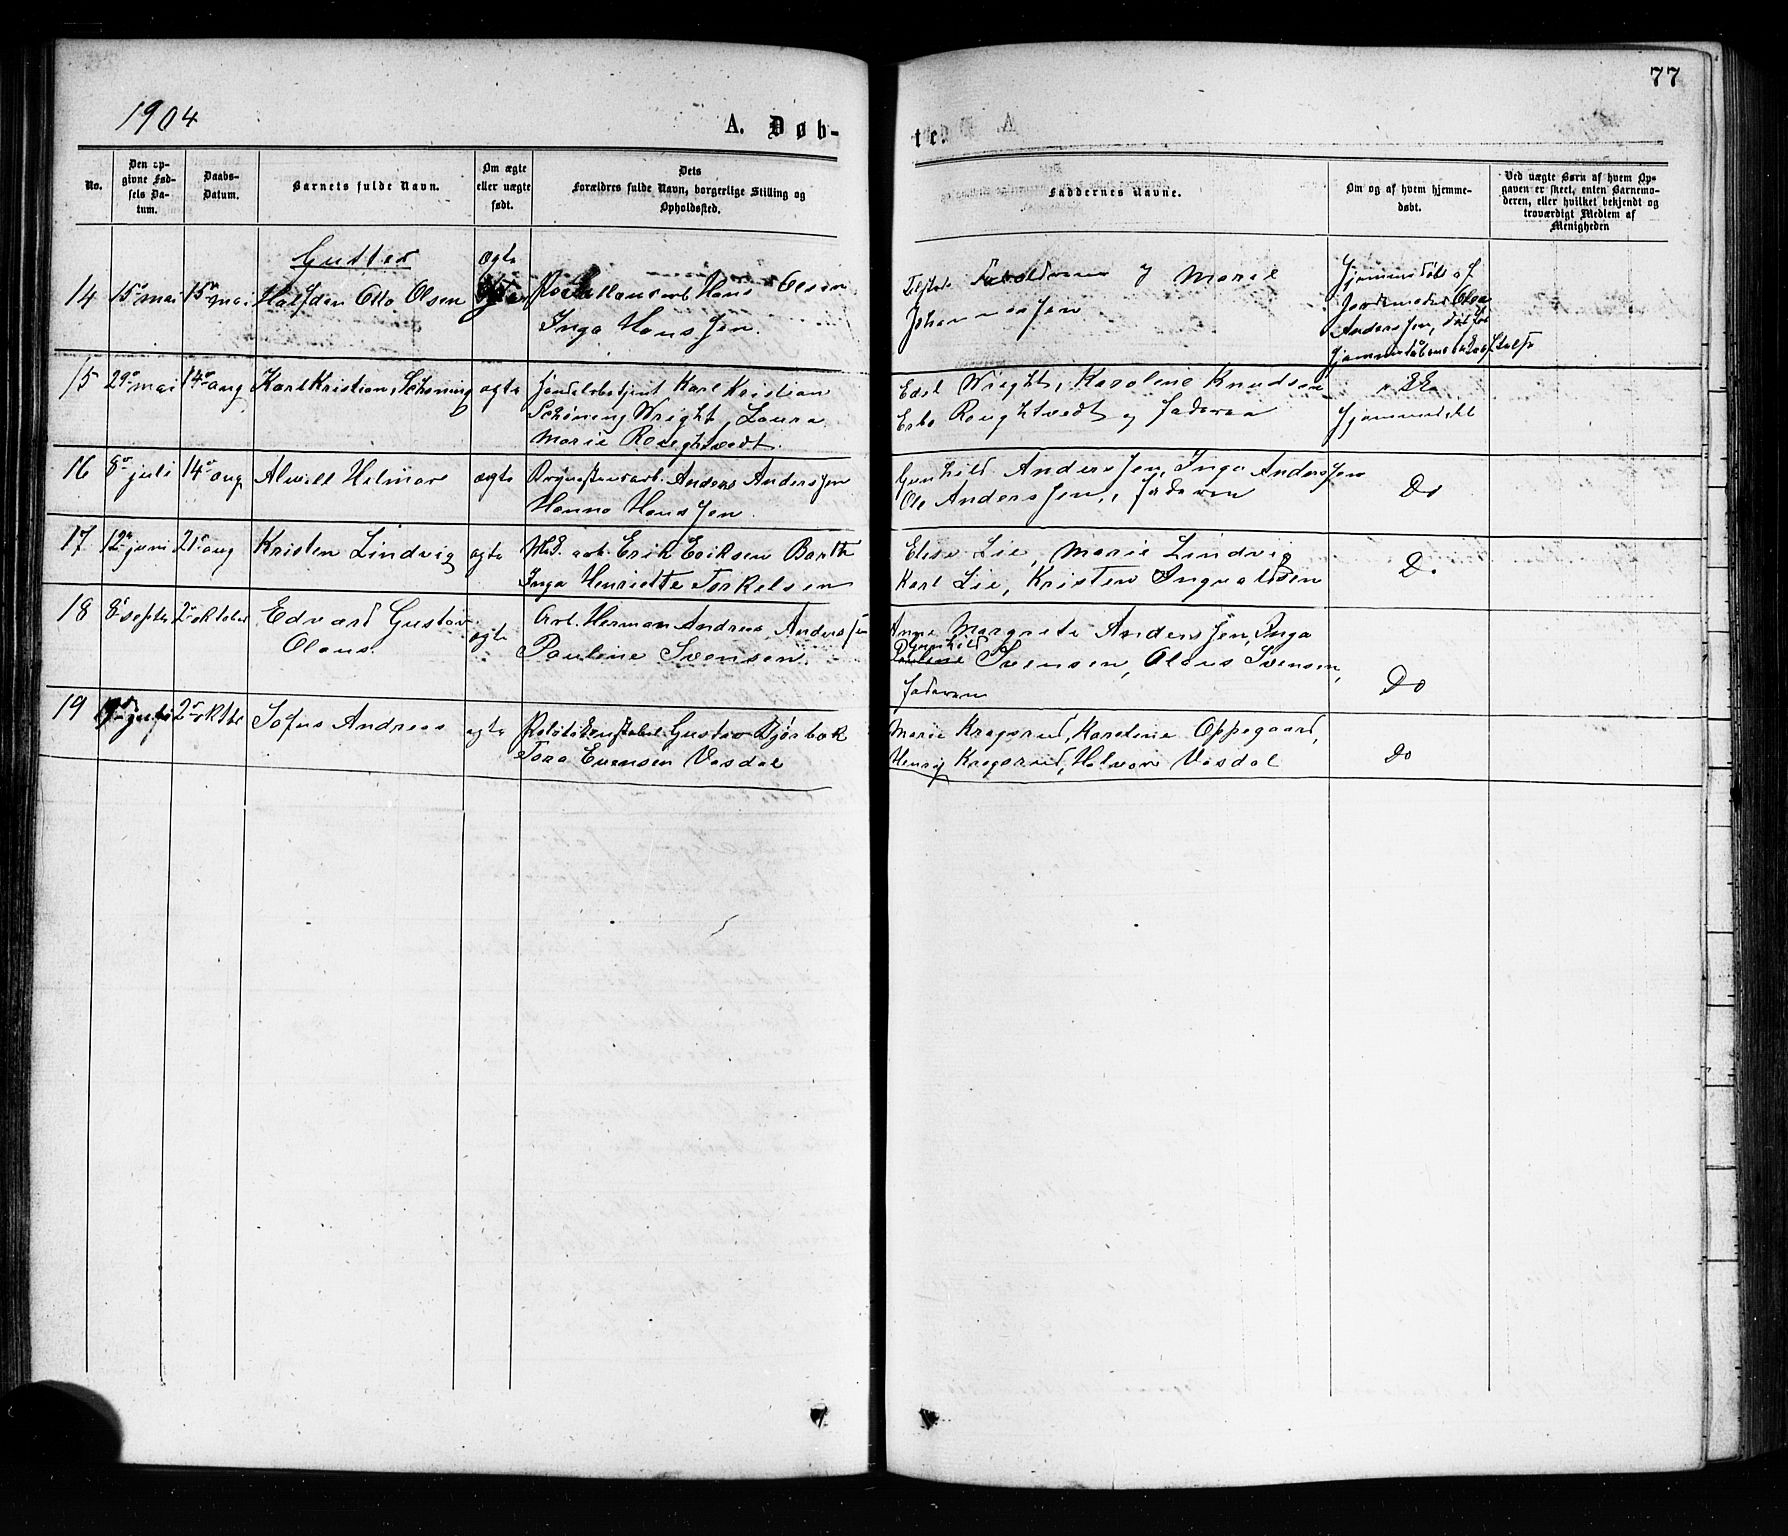 77
1904
A. Døb-
te.
No.
Den op-
givne Fød-
sels Da-
tum.
Daabs-
Datum.
Barnets fulde Navn.
Om ægte
eller uægte
født.
Dets
Forældres fulde Navn, borgerlige Stilling og
Opholdssted.
Faddernes Navne.
Om og af hvem hjemme-
døbt.
Ved uægte Børn af hvem Op-
gaven er skeet, enten Barnemo-
deren, eller hvilket bekjendt og
troværdigt Medlem af
Menigheden
Gutter
14 15 mai 15 mai Halfdan Otto Olsen ægte Hans Olsen
Inga Hansen.
Forældrene og Marie
Johannessen
Hjemmedøbt af
Jordemoder Olga
Anderssen,
15 29 mai 14 aug Karl Kristian Schøning ægte Handelsbetjent Karl Kristian
Schøning Wright, Laura
Marie Roughtvedt.
Edel Wright, Karoline Knudsen
Roughtvedt og Faderen
Hjemmedøbt
16 8 juli 14 aug Alvilt Hilmar ægte Anders Anderssen
Hanna Hanssen.
Gunhild Anderssen, Inga Anderssen
Ole Anderssen, Faderen
Do
17 12 juni 21 aug Kristen Lindvig ægte arb. Erik Eriksen Barth
Inga Henriette Torkelsen
Elise Lie, Marie Lindvig
Karl Lie, Kristen Ingvaldsen
Do
18 8 septbr 2 oktober Edvard Gustav
Olaus.
ægte Arb. Herman Andreas Anderssen
Pauline Svensen.
Anne Margrete Anderssen, Inga
Gunhild
Pauline Svensen, Olaus Svensen,
Faderen
Do
19 2 oktbr Sofus Andreas ægte Politikonstabel Gustav Bjørbæk
Tora Evensen Vasdal
Marie Kragsrud, Karoline Oppegaard,
Henrij Kragsrud, Halvor Vasdal
Do